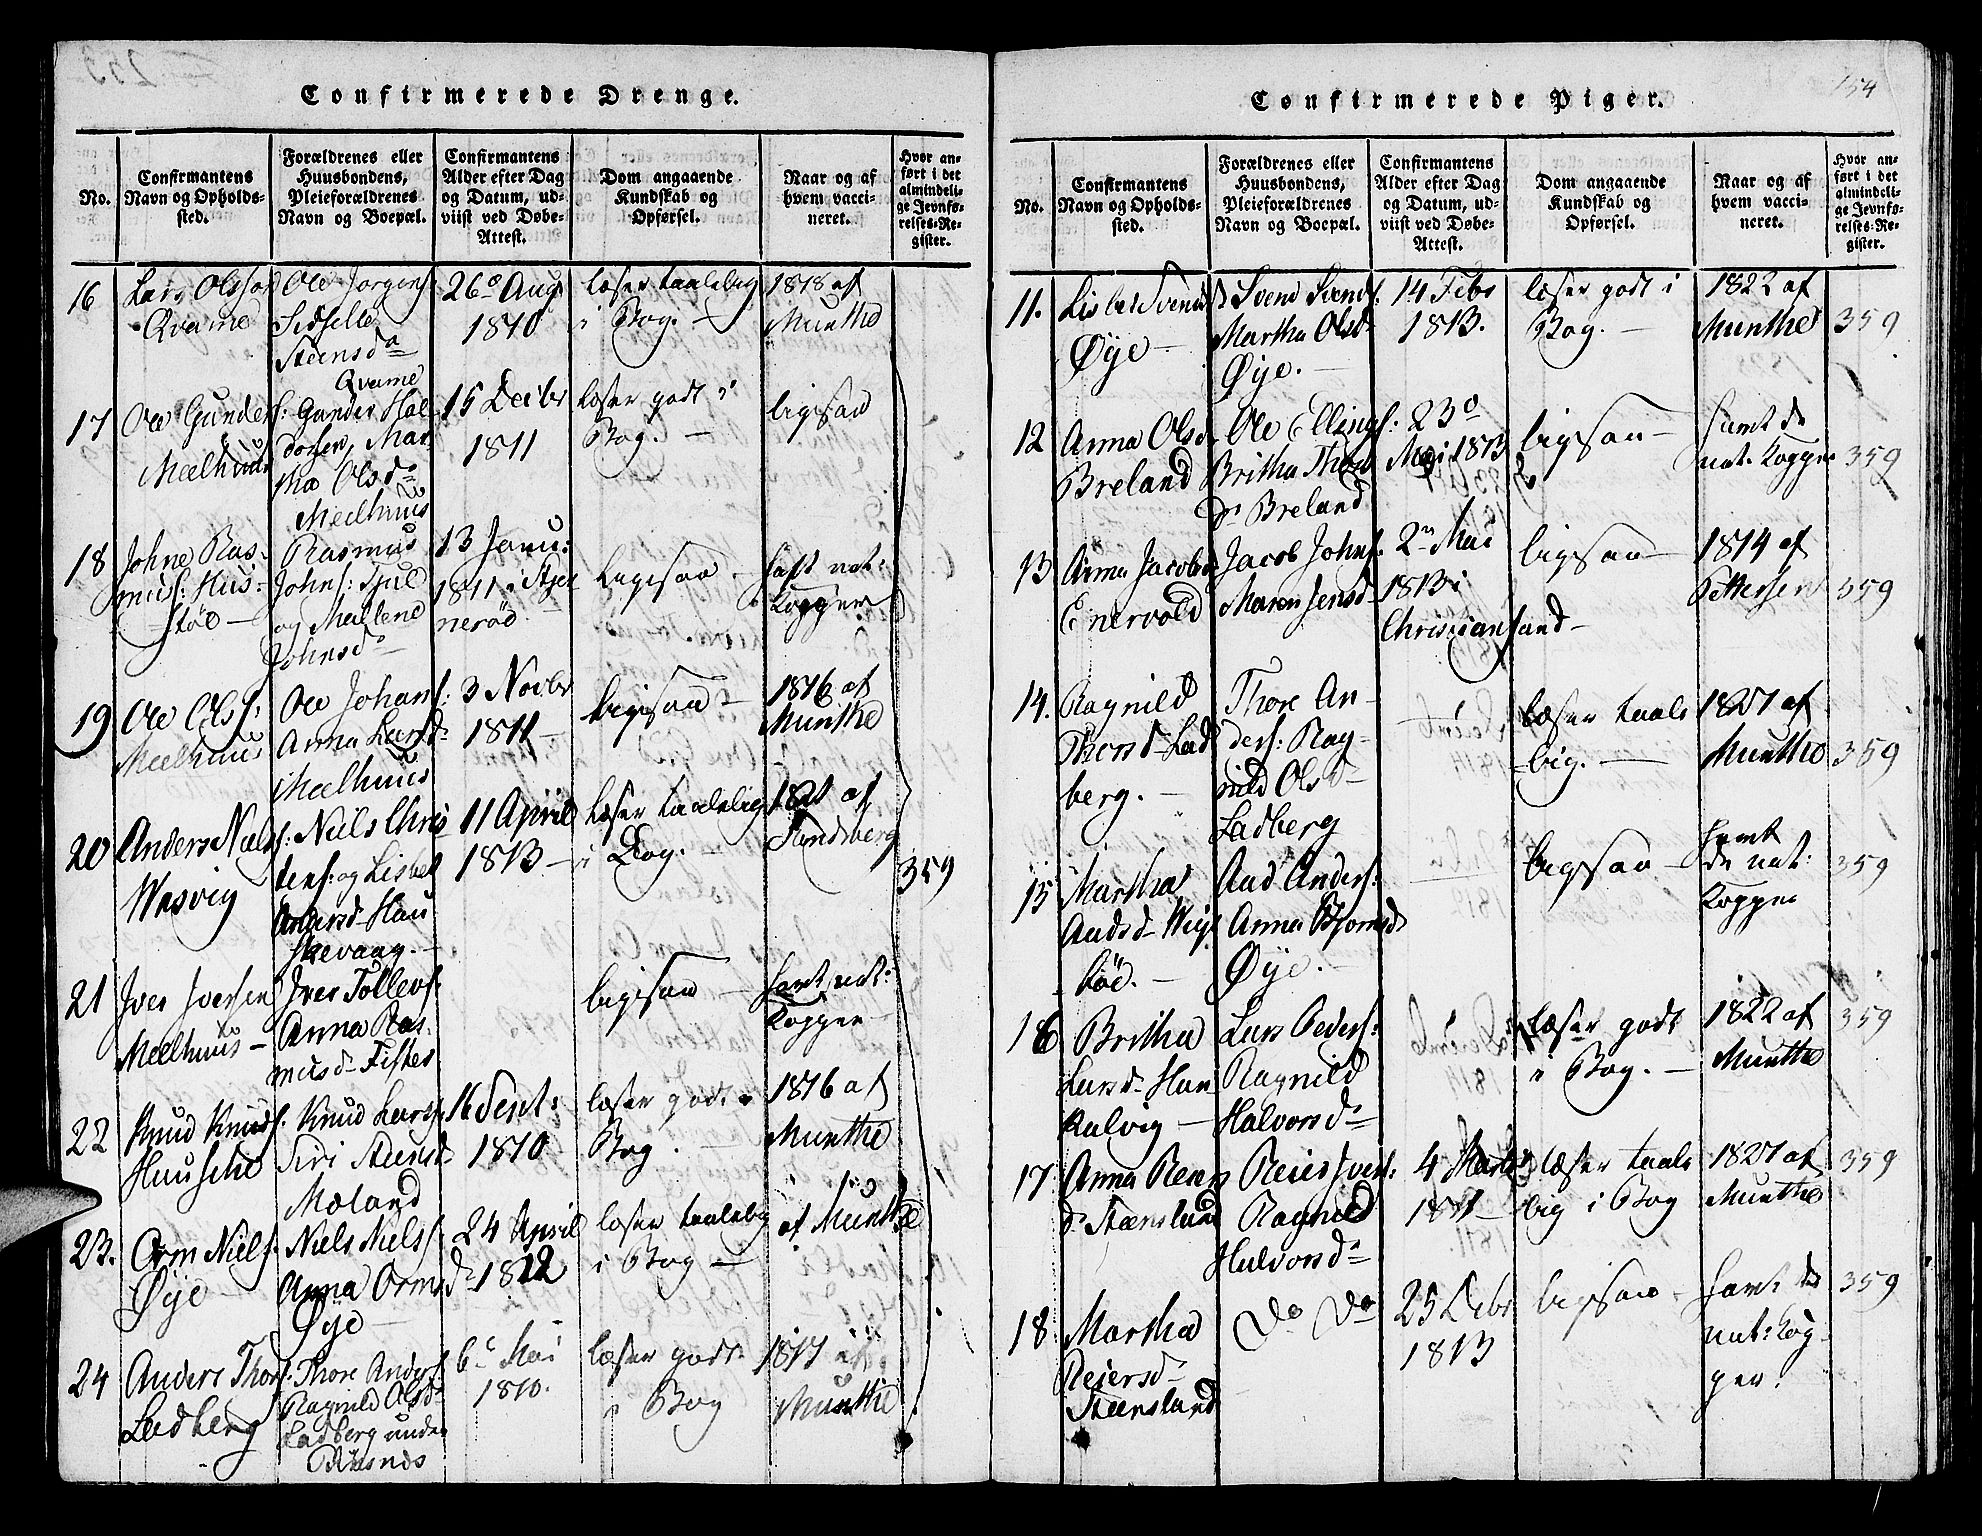 Confirmerede Drenge.
No.
Confirmantens
Navn og Opholds-
sted.
Forældrenes eller
Huusbondens,
Pleieforældrenes
Navn og Boepæl.
Confirmantens
Alder efter Dag
og Datum, ud-
viist ved Døbe-
Attest.
Dom angaaende
Kundskab og
Opførsel.
Naar og af
hvem vacci-
neret.
Hvor an-
ført i det
almindeli-
ge Jevnfø-
relses-Re-
gister.
16
Lars Olsson
Qvame
Ole Jorgens:
Sidselle
Steensdr
Qvame
26de Aug
1810
læser taalelig
i Bog. –
1818 af
Munthe
17
Ole Gunders:
Meelhuus
Gunder Hal-
dorsen, Mar-
tha Olsdr
Meelhuus
15 Decbr
1811
læser godt i
Bog. –
ligesaa
18
Johne Ras-
mus: Hus-
støe –
Rasmus
Johns:
og Mallene
Johnsdr
13 Janu:
1811 i
nerød
ligesaa –
haft nat:
Kopper
19
Ole Ols:
Meelhuus
Ole Johans:
Anna Larsdr
Meelhuus
3 Novbr
1811 –
ligesaa –
1816 af
Munthe
20
Anders Niels:
Wasvig
Niels Chris
tens: og Lisbet
Andersd- Hau
skevaag. –
11 April
1813 –
læser taalelig
i Bog. –
1821 af
Sundberg
359
21
Iver Iversen
Meelhuus –
Iver Tollevs:
Anna Ras-
musd- Fister
ligesaa –
havt nat:
Kopper –
22
Knud Knuds:
Knud Lars:
Siri Steensd-
Moland
16 Sept:
1810
læser godt i
Bog. –
1816 af
Munthe
23.
Orm Niels:
Øye –
Niels Niels:
Anna Orms
dr
Øye –
24 April
1812
læser taalelig
i Bog –
af Munthe
24
Anders Thors:
Ladberg
Thore Anders:
Ragnild Olsdr
Ladberg under
6te Mai
1810.
læser godt
i Bog
1817 af
Munthe
Confirmerede Piger.
154
No.
Confirmantens
Navn og Opholds-
sted.
Forældrenes eller
Huusbondens,
Pleieforældrenes
Navn og Boepæl.
Confirmantens
Alder efter Dag
og Datum, ud-
viist ved Døbe-
Attest.
Dom angaaende
Kundskab og
Opførsel.
Naar og af
hvem vacci-
neret.
Hvor an-
ført i det
almindeli-
ge Jevnfø-
relses-Re-
gister.
11.
Lisbet Svensd
Øye –
Svend Svends:
Martha Olsd-
Øye. –
14 Febr
1813.
læser godt i
Bog. –
1822 af
Munthe
359
12
Anna Olsd-
Breland
Ole Ellings:
Britha Thors
dr Breland
23de
Mai 1813
ligesaa –
havt de
nat: Kopper
359
13
Anna Jacobsd-
Enervold
Jacob Johns:
Maren Jensd-
2n Mai
1813 i
Christiansand –
ligesaa –
1814 af
Pettersen
359
14.
Ragnild
Thorsd- Lad
berg. –
Thore An-
ders: Rag-
nild Olsd-
Ladberg
læser taale
lig. –
1821 af
Munthe
359
15
Martha
Audsd- Wig
støe. –
Aud Anders:
Anna Bjornsd
Øye. –
ligesaa –
havt
de nat:
Kopper
359
16
Britha
Larsd- Han
kalvig –
Lars Peders:
Ragnild
Halvorsdr
læser godt
i Bog. –
1822 af
Munthe
359
17
Anna Reiers
dr Steensland
Reier Ivers:
Ragnild
Halvorsdr
4 Marts
1811 –
læser taale
lig i Bog
1821 af
Munthe
359
18.
Martha
Reiersd-
Steensland
Do Do
25 Debr
1813
ligesaa –
havt de
nat: Kop-
per.
359